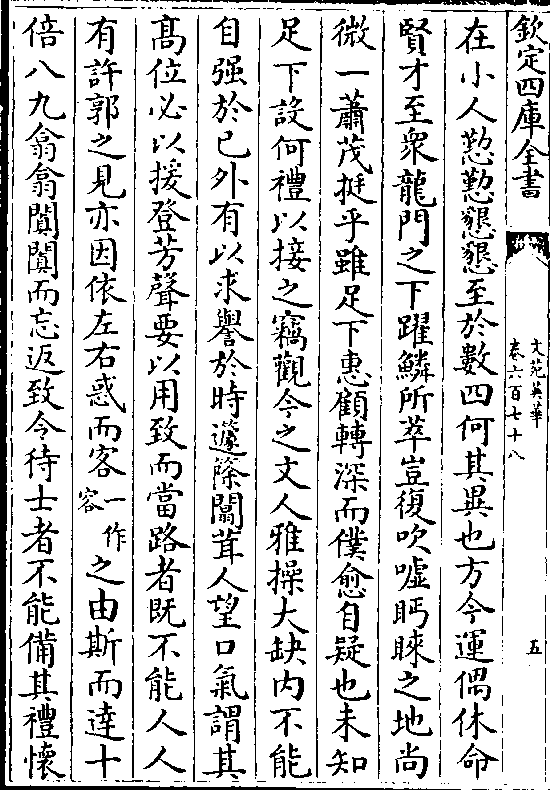 欽定四庫全書
文苑英華
卷六百七十八
五
在小人懃懃懇懇至於數四何其異也方今運偶休命
賢才至衆龍門之下躍鱗所萃豈復吹嘘眄睞之地尚
微一蕭茂挺乎雖足下惠顧轉深而僕愈自疑也未知
足下設何禮以接之竊觀今之文人雅操大缺内不能
自强於已外有以求譽於時蘧蒢闒茸人望口氣謂其
髙位必以援登芳聲要以用致而當路者既不能人人
有許郭之見亦因依左右惑而客一作容之由斯而達十
倍八九翕翕闐闐而忘返致令待士者不能備其禮懐